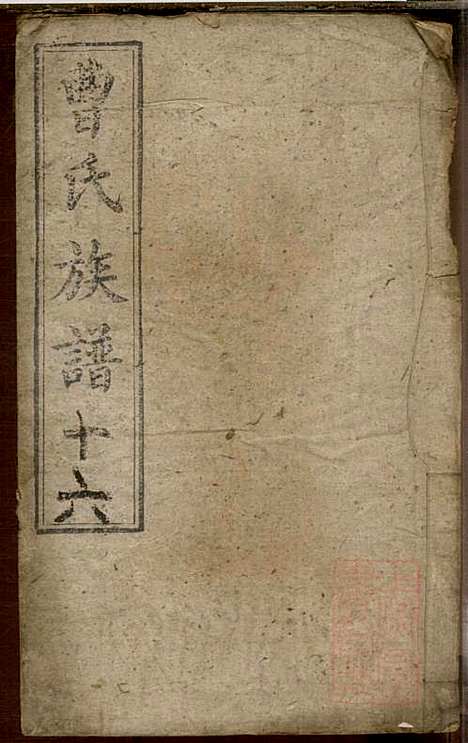 曹氏族譜十六